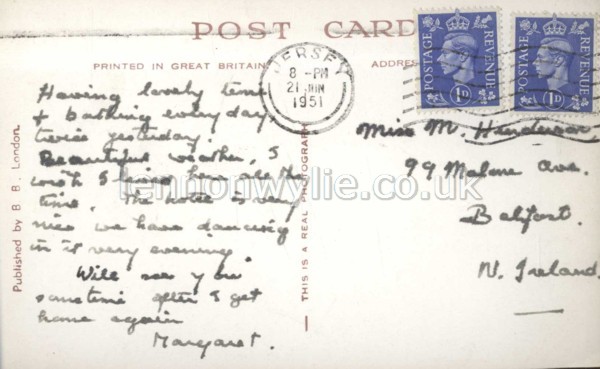 POST CARD
PRINTED IN GREAT BRITAIN
ADDRESS
JERSEY
8 - PM
21 JUN
1951
POSTAGE REVENUE
1D
POSTAGE REVENUE
1D
Having lovely time
& bathing every day,
twice yesterday.
Beautiful weather, I
wish I lived here all the
time. The hotel is very
nice we have dancing
in it every evening
Will see you
sometime after I get
home again
Margaret.
Miss M. Henderson,
99 Malone Ave.
Belfast.
N. Ireland.
Published by B. B. London.
THIS IS A REAL PHOTOGRAPH
lennonwylie.co.uk